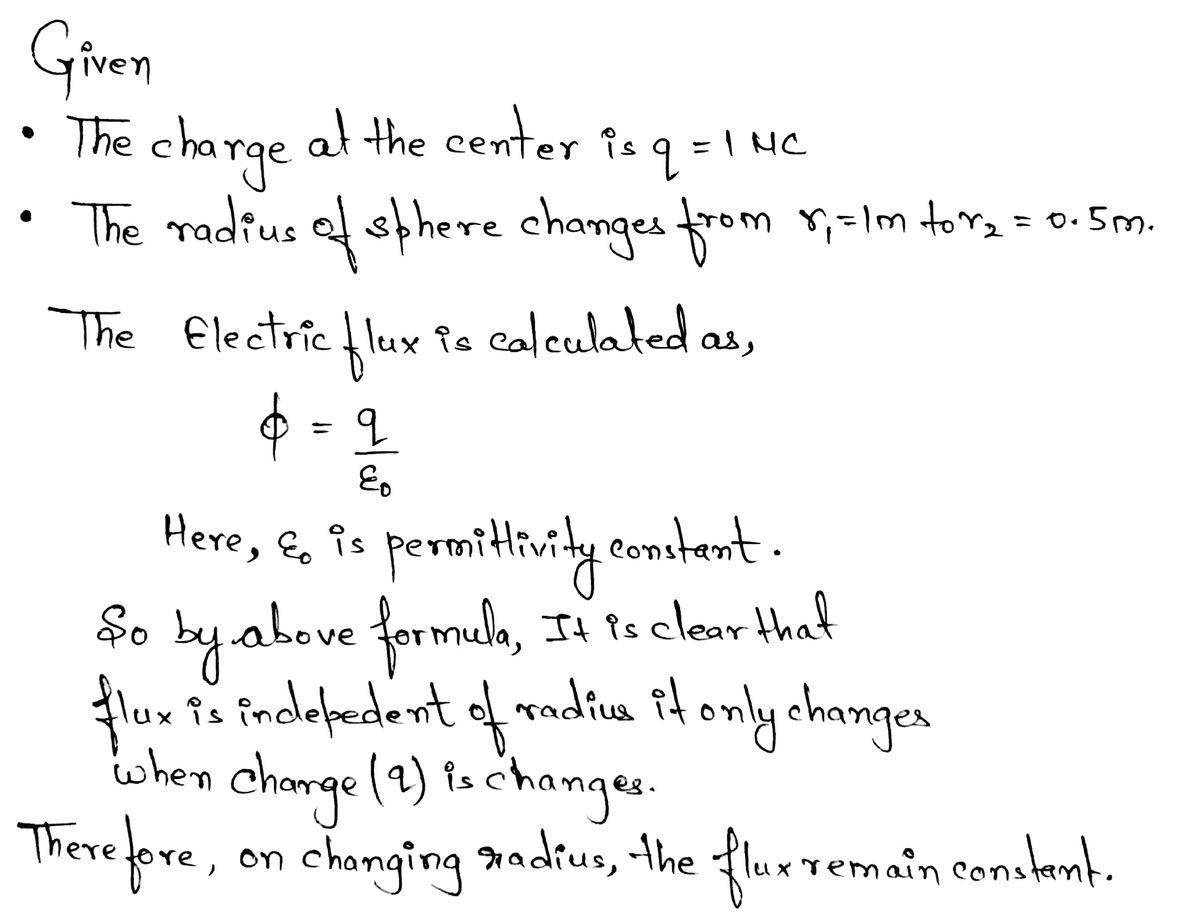 Given
• The charge at the center is q = 1 μC
• The radius of sphere changes from r₁ = 1m to r₂ = 0.5m.
The Electric flux is calculated as,
ϕ = q
ε₀
Here, ε₀ is permittivity constant.
So by above formula, It is clear that
flux is indepedent of radius it only changes
when charge (q) is changes.
Therefore, on changing radius, the flux remain constant.